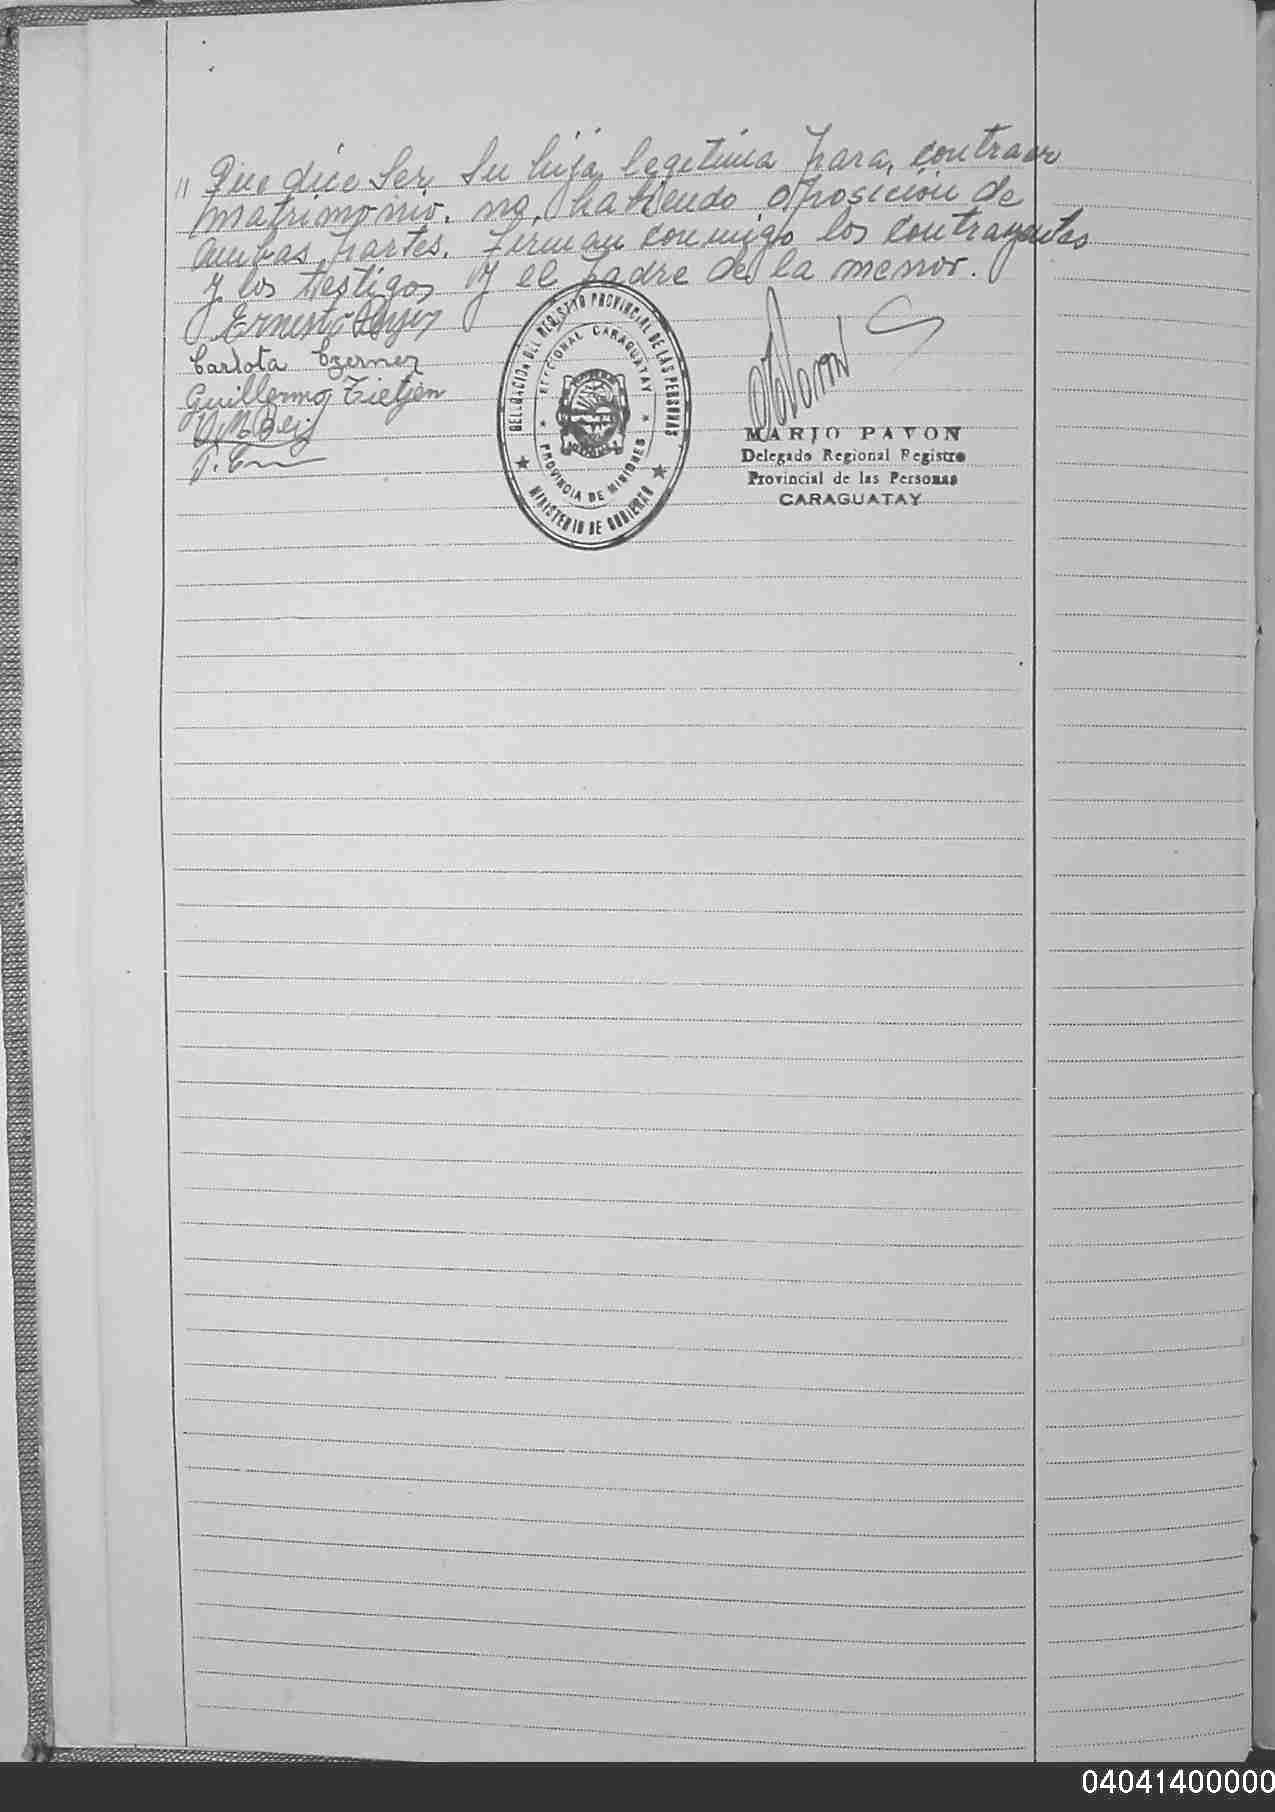 " Que dice Ser Su hija legitima para contraer
matrimonio. no habiendo oposición de
ambas partes. Firman conmigo los contrayentes
y los testigos y el padre de la menor.
Ernesto
Carlota Czerner
Guillermo Tietjen
DELEGACION DEL REGISTRO PROVINCIAL DE LAS PERSONAS
SECCIONAL CARAGUATAY
PROVINCIA DE MISIONES
MINISTERIO DE GOBIERNO
MARIO PAVON
Delegado Regional Registro
Provincial de las Personas
CARAGUATAY
04041400000